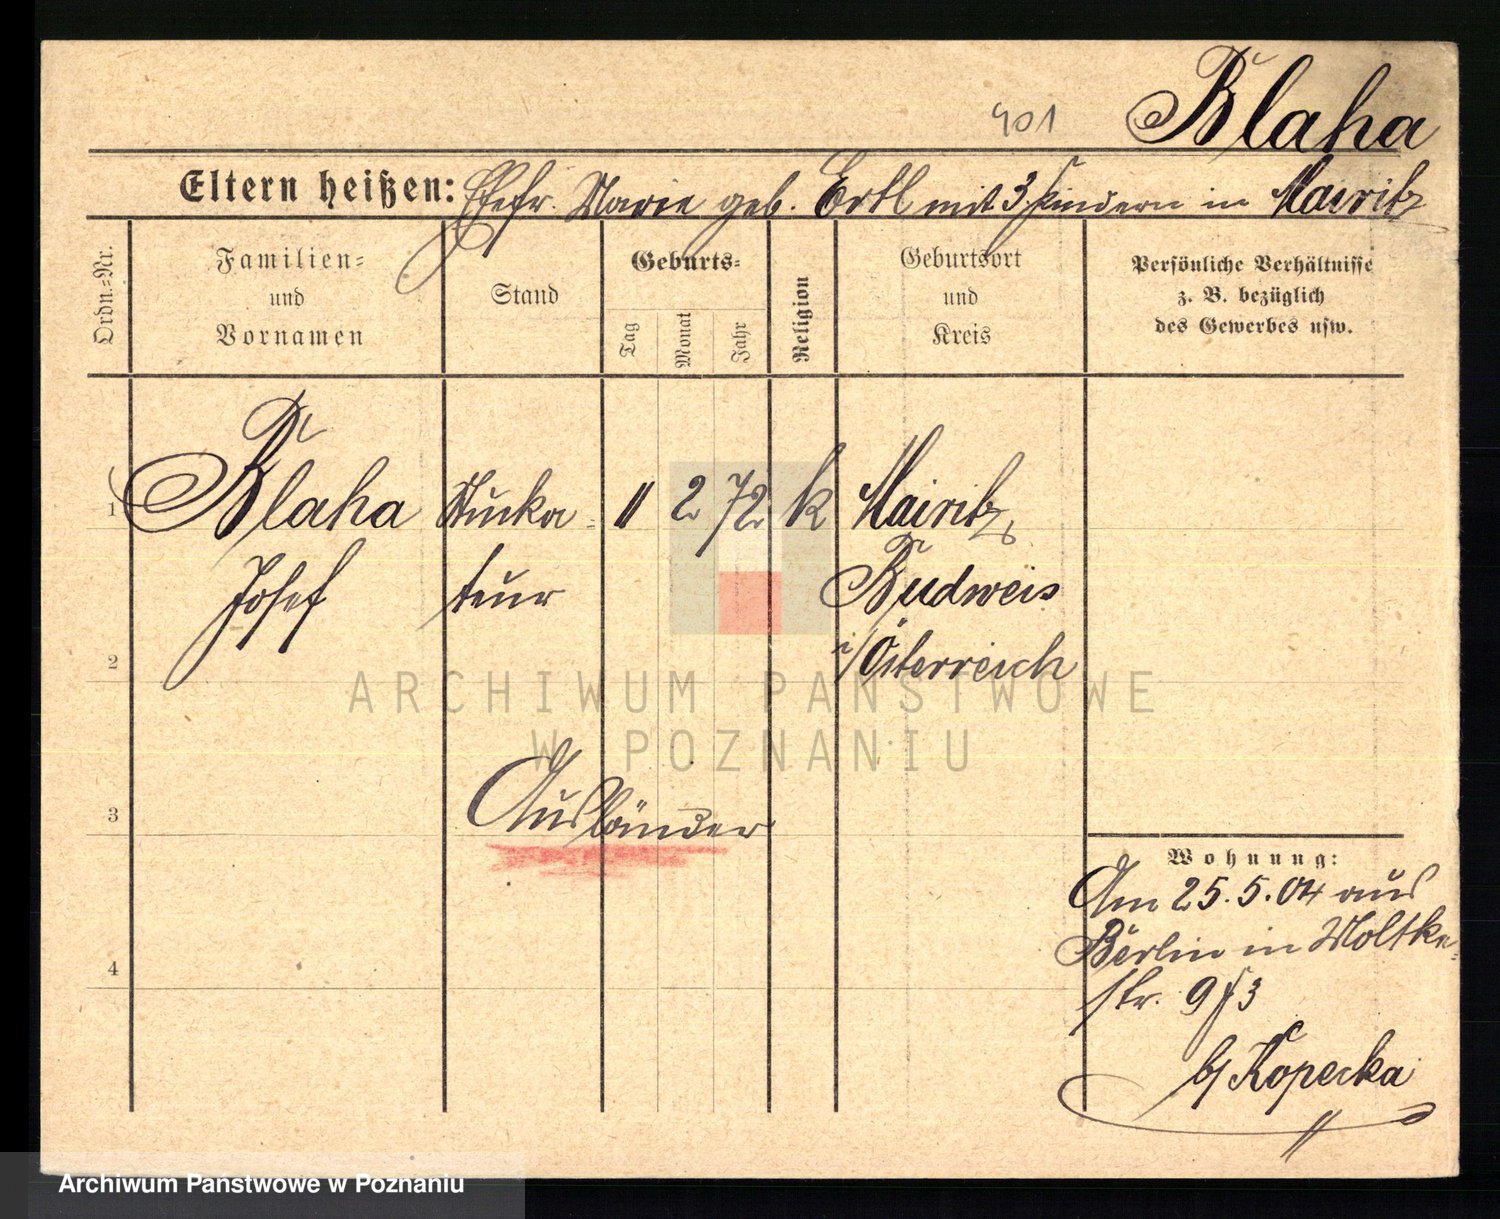 401
Blaha
Eltern heißen: Ehefr. Marie geb. Ertl mit 3 Kindern in Mairitz
Ordn.-Nr.
Familien-
und
Vornamen
Stand
Geburts-
Tag
Monat
Jahr
Religion
Geburtsort
und
Kreis
Persönliche Verhältnisse
z. B. bezüglich
des Gewerbes usw.
1 Blaha Stucka- 11 2 72 k Mairitz,
Josef teur Budweis
2 i/Österreich
ARCHIWUM PAŃSTWOWE
W POZNANIU
3 Ausländer
Wohnung:
Am 25.5.04 aus
Berlin in Moltke-
4
str. 9
b/ Kopecka
Archiwum Państwowe w Poznaniu